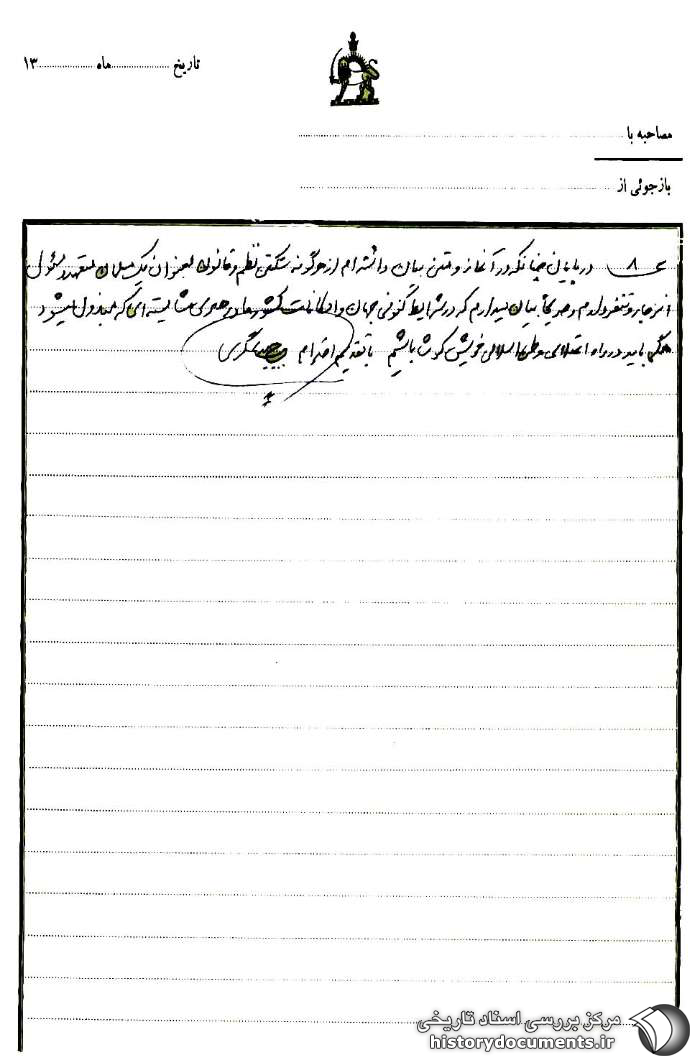 تاریخ ماه ۱۳
مصاحبه با
بازجوئی از
۸ در پایان چنانکه در آغاز و متن بیان داشته‌ام از هرگونه شکستن نظم و قانون بعنوان یک مسلمان متعهد و مسئول
انزجار و تنفر دارم و صریحاً بیان میدارم که در شرایط کنونی جهان و امکانات کشور ما و رهبری شایسته‌ای که مبذول میشود
همگی باید در راه اعتلای وطن اسلامی خویش کوشا باشیم با تقدیم احترام
مرکز بررسی اسناد تاریخی
historydocuments.ir